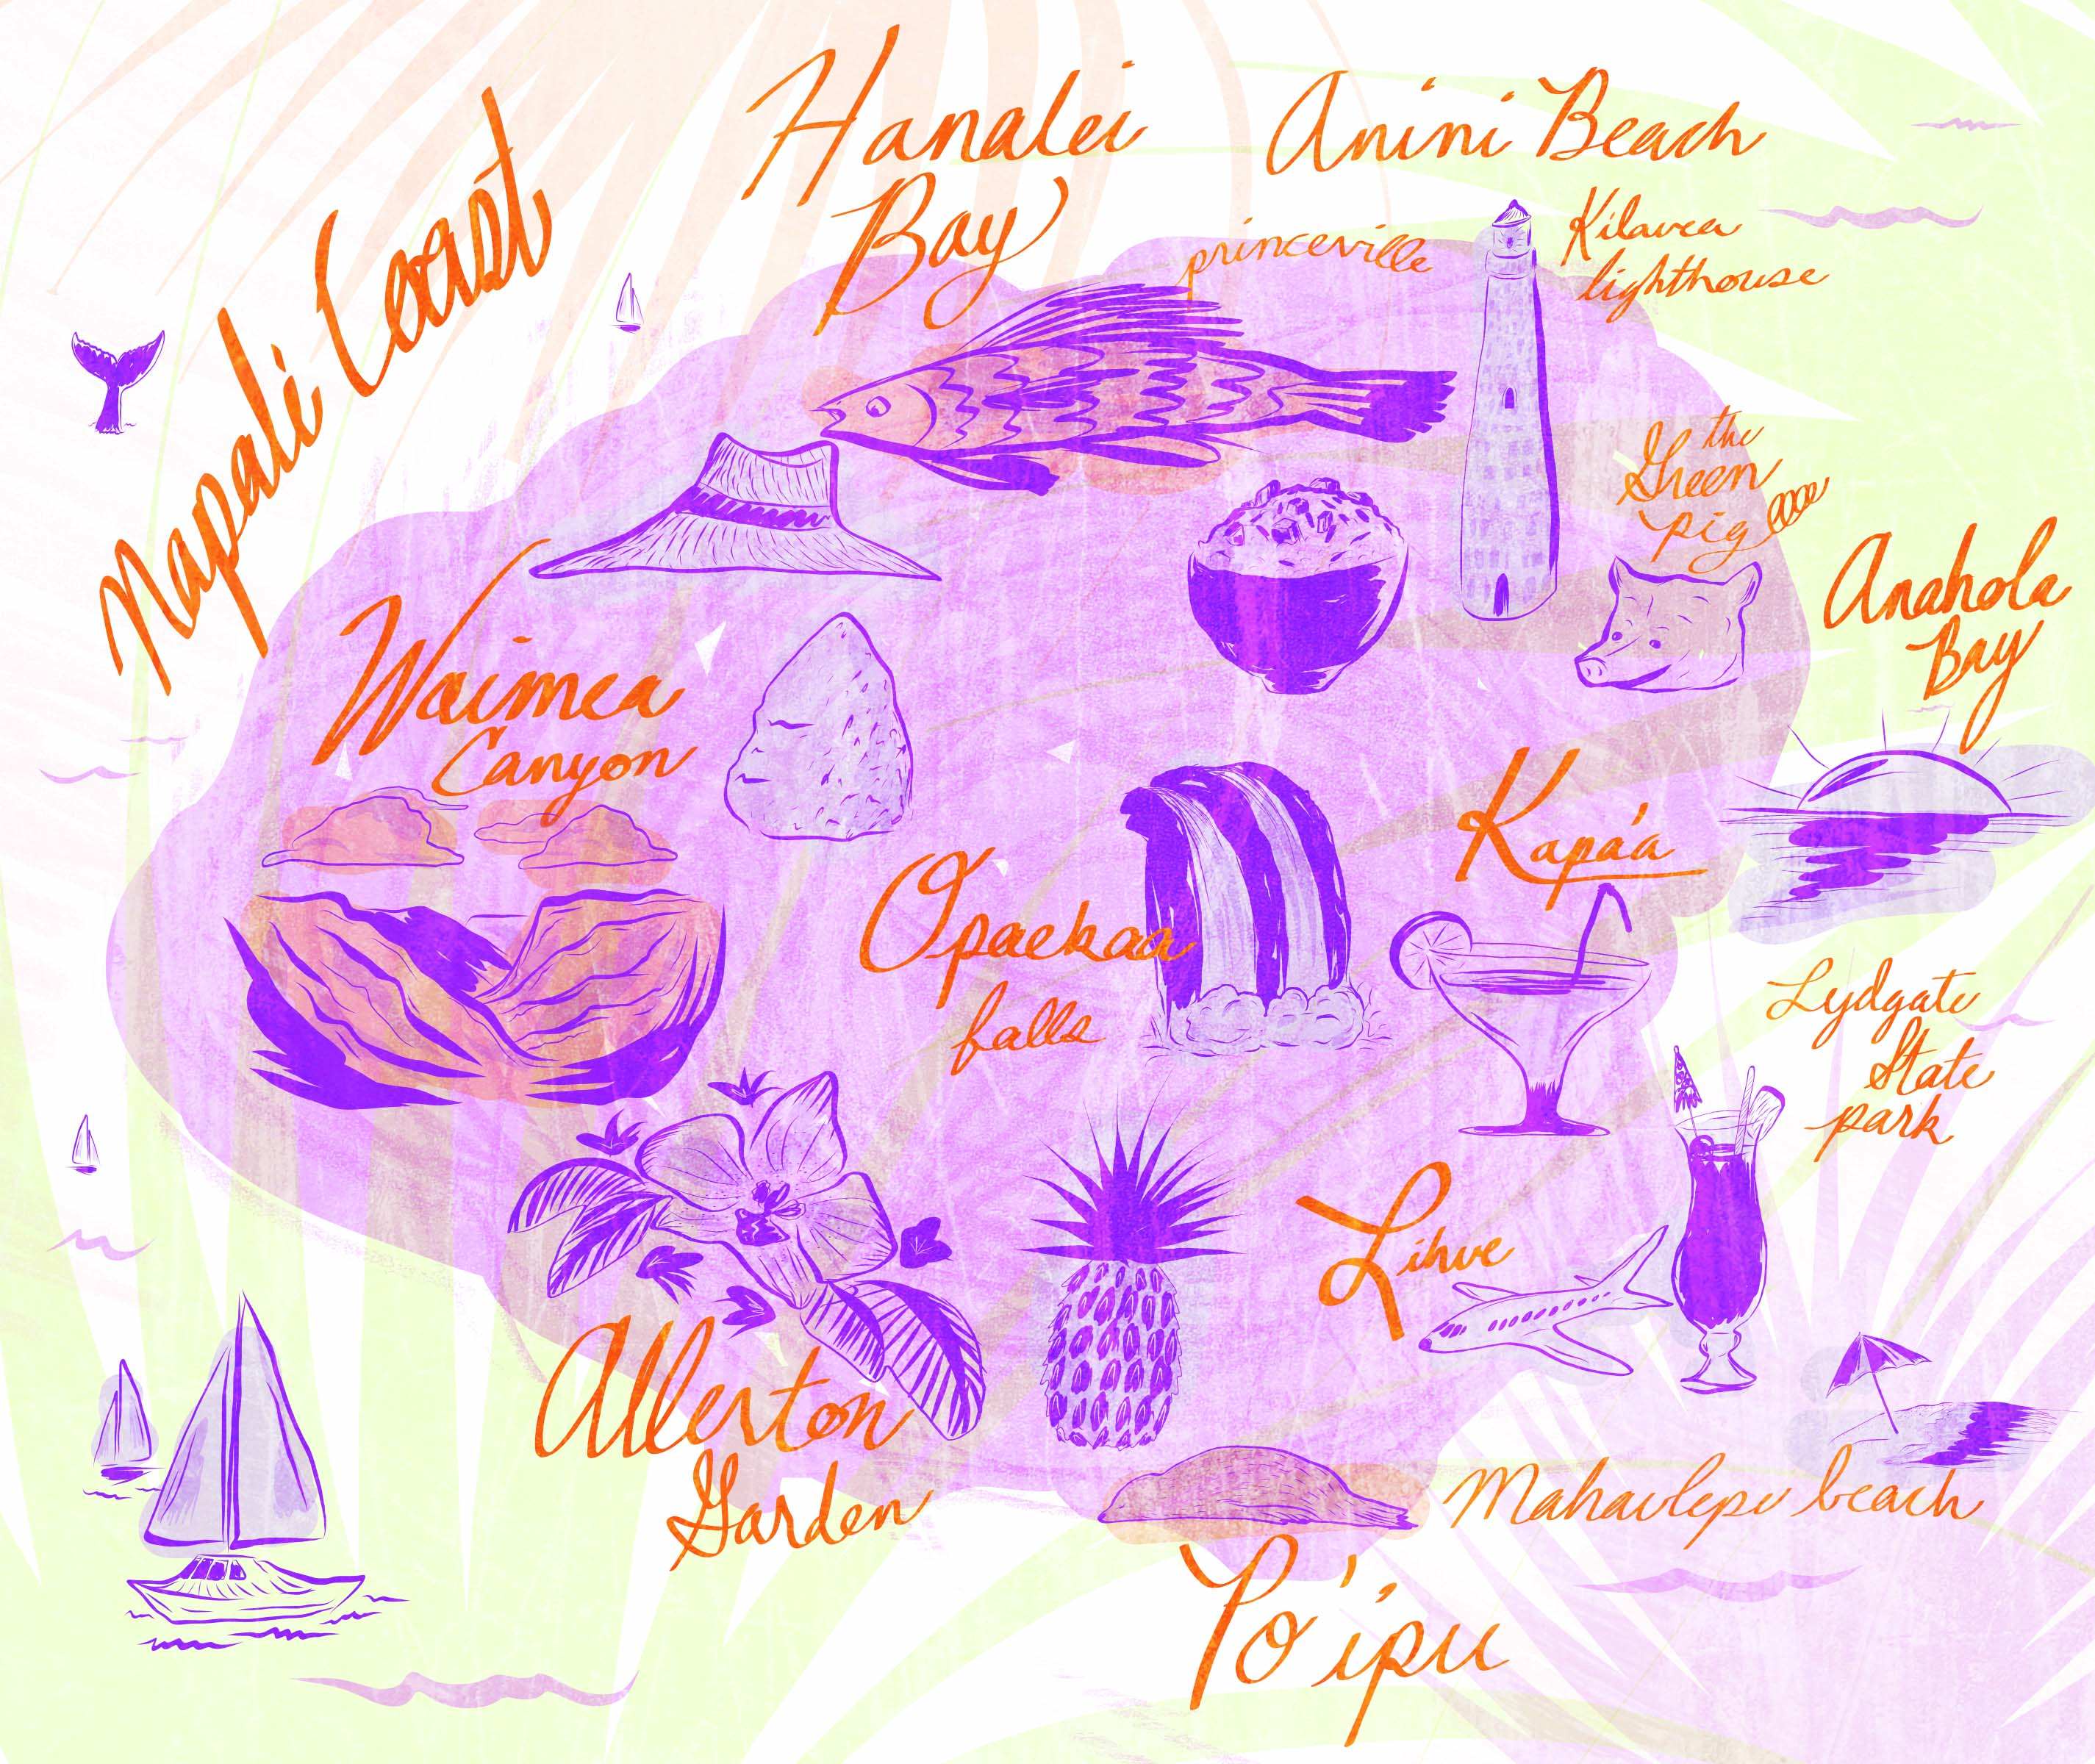 Hanalei
Bay
Anini Beach
princeville
Kilauea
lighthouse
Napali Coast
the
Green
pig
Anahola
Bay
Waimea
Canyon
Kapa'a
Opaekaa
falls
Lydgate
State
park
Lihue
Allerton
Garden
Mahaulepu beach
Po'ipu